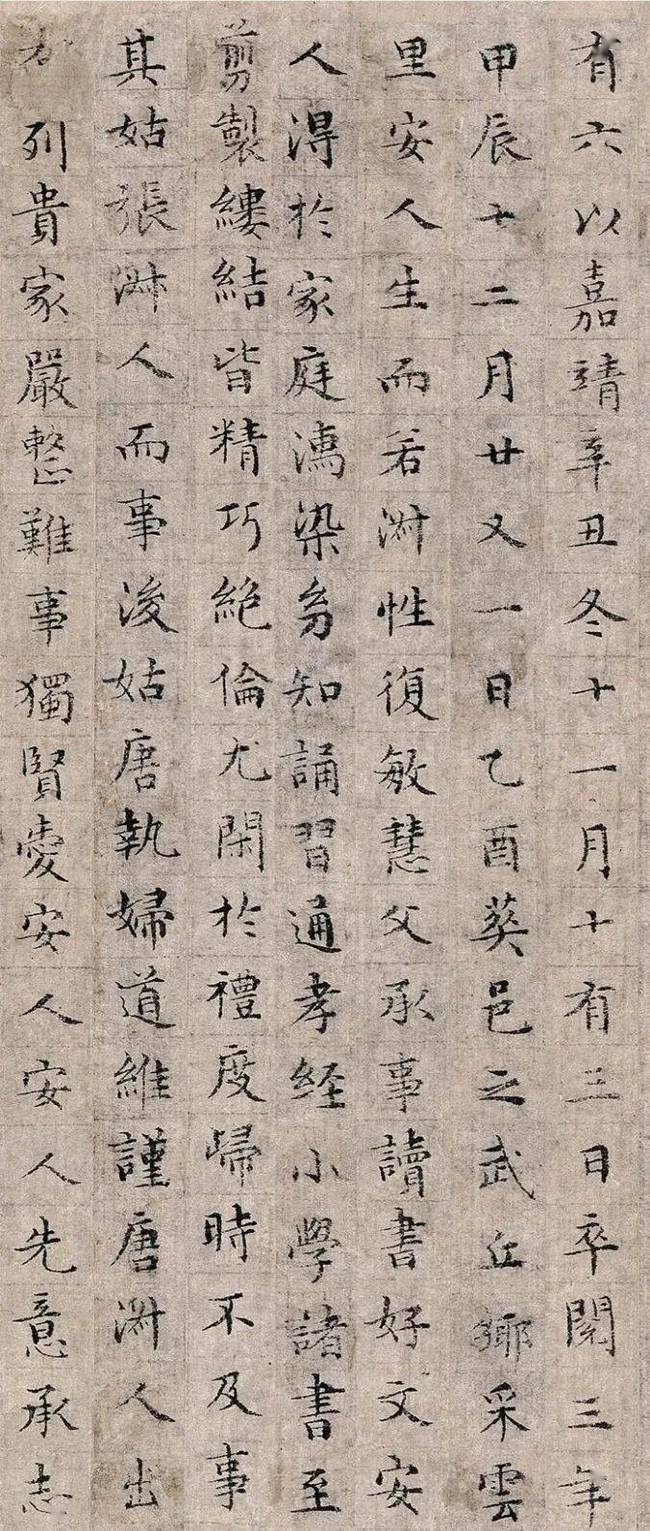 有六以嘉靖辛丑冬十一月十有三日卒閱三年
甲辰十二月廿又一日乙酉葵邑之武丘鄉采雲
里安人生而若淋性復敏慧父承事讀書好文安
人淂於家庭濡染劦知誦習通孝経小學諸書至
剪製縷結皆精巧絕倫尤閑於禮度歸時不及事
其姑張淋人而事浚姑唐執婦道維謹唐淋人出
右列貴家嚴整難事獨賢愛安人安人先意承志